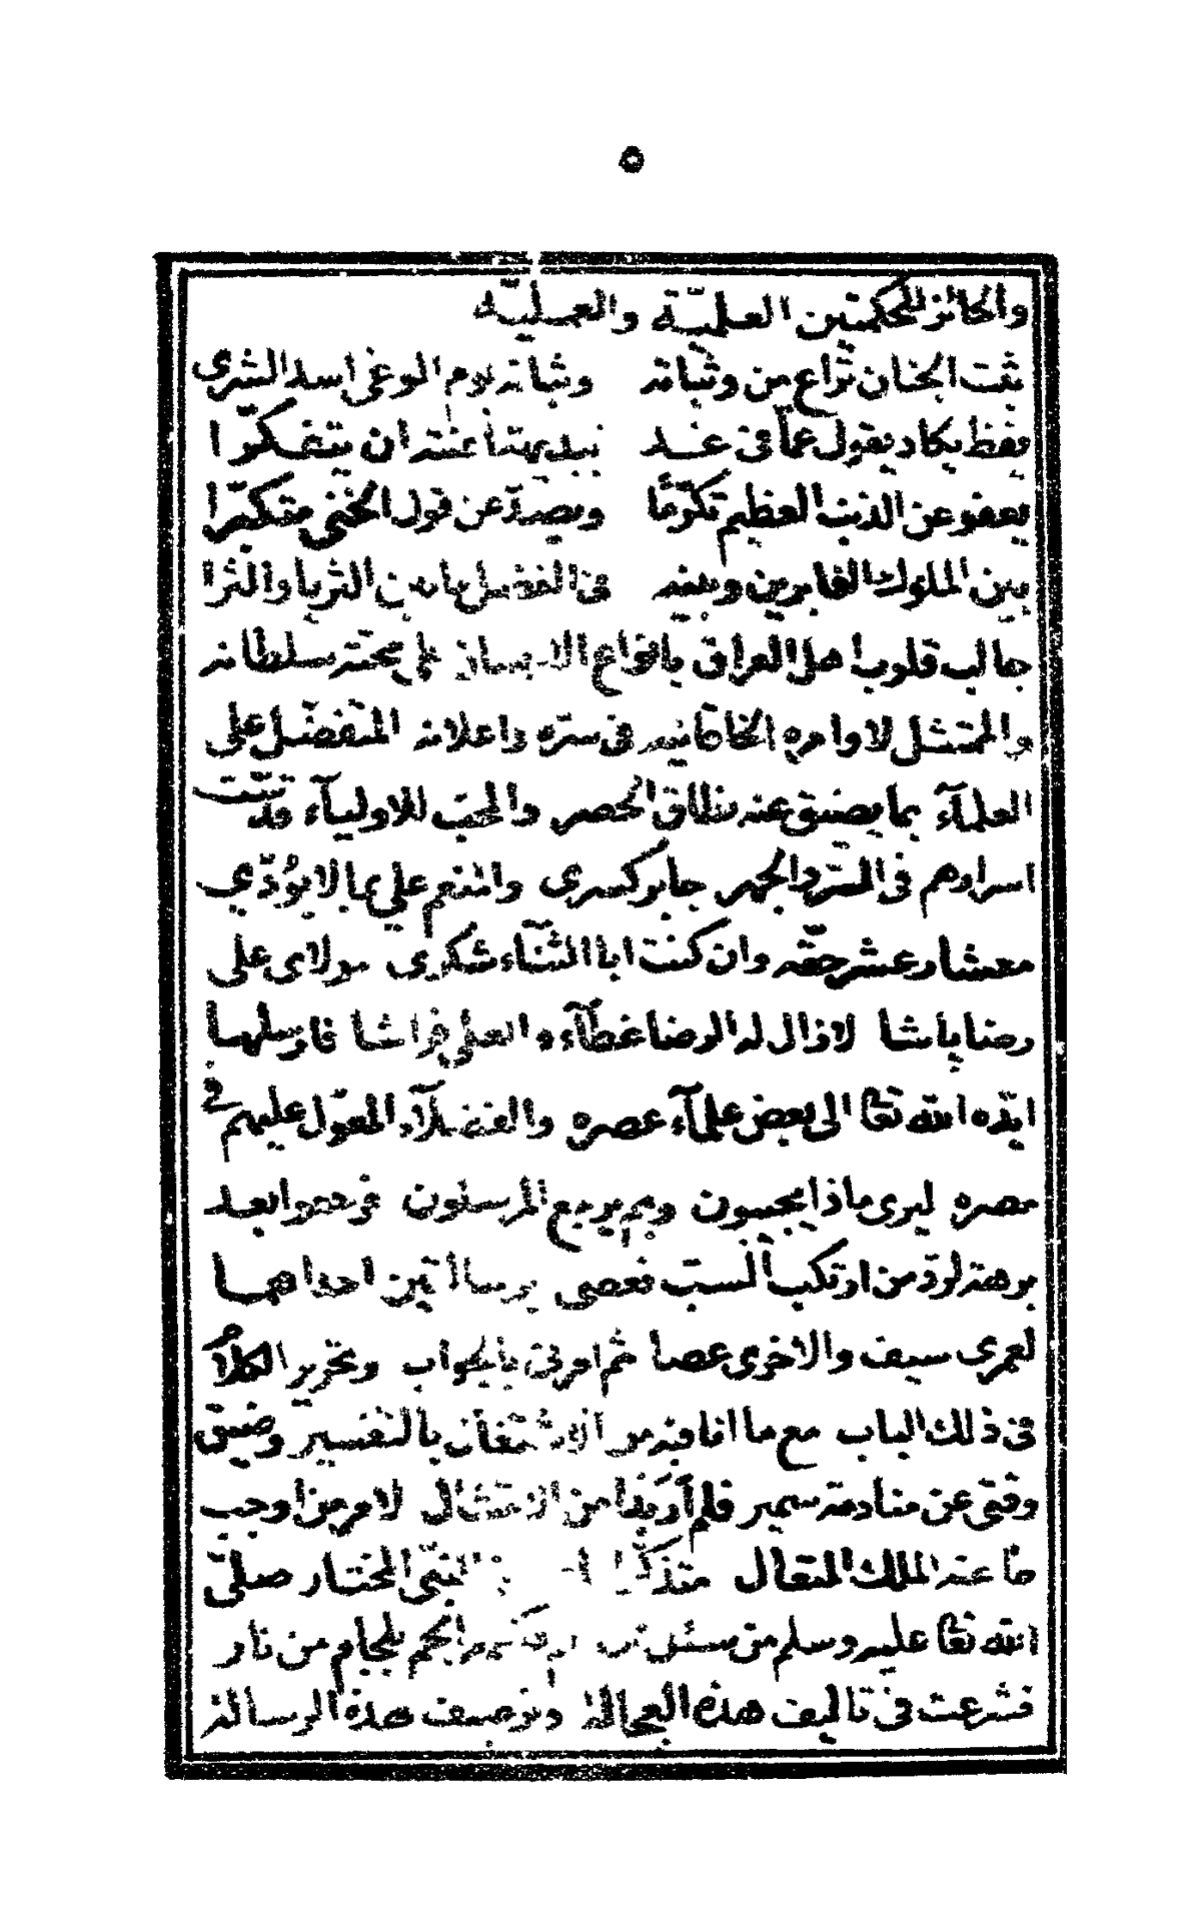 ٥
والحائز للحكمتين العلميّة والعمليّه
ثبت الجنان تراع من وثباته وثباته يوم الوغى اسد الشرى
يقظ يكاد يقول عما فى غد ببديهة أغنته ان يتفكّرا
يعفو عن الذنب العظيم تكرّمًا ويصدّ عن قول الخنى متكبّرا
بين الملوك الغابرين وبينه فى الفضل ما بين الثريا والثرا
جالب قلوب اهل العراق بانواع الاحسان على محبته سلطانه
والممتثل لاوامره الخاقانيه فى سرّه واعلانه المتفضّل على
العلمآء بما يضيق عنه نطاق الحصر والمحبّ للاوليآء قدّست
اسرارهم فى السرّ والجهر جابر كسرى والمنعم علي بما لا يؤدّي
معشار عشر حقّه وان كنت ابا الثنآء شكرى مولاى على
رضا پاشا لا زال له الرضا غطآء والعلى فراشا فارسلها
ايّده الله تعا الى بعض علمآء عصره والفضلآء المعوّل عليهم فى
مصره ليرى ماذا يجيبون وبم يرجع المرسلون فرجعوا بعد
برهة لردّ من ارتكب السبّ فعصى برسالتين احداهما
لعمرى سيف والاخرى عصا ثم امرنى بالجواب وتحرير الكلام
فى ذلك الباب مع ما انا فيه من الاشتغال بالتفسير وضيق
وقتى عن منادمة سمير فلم أر بدا من الامتثال لامر من اوجب
ما عنه الملك المتعال متذكرا النبّى المختار صلىّ
الله تعا عليه وسلم من سئل الجم بلجام من نار
فشرعت فى تاليف هذه العجالة وترصيف هذه الرسالة